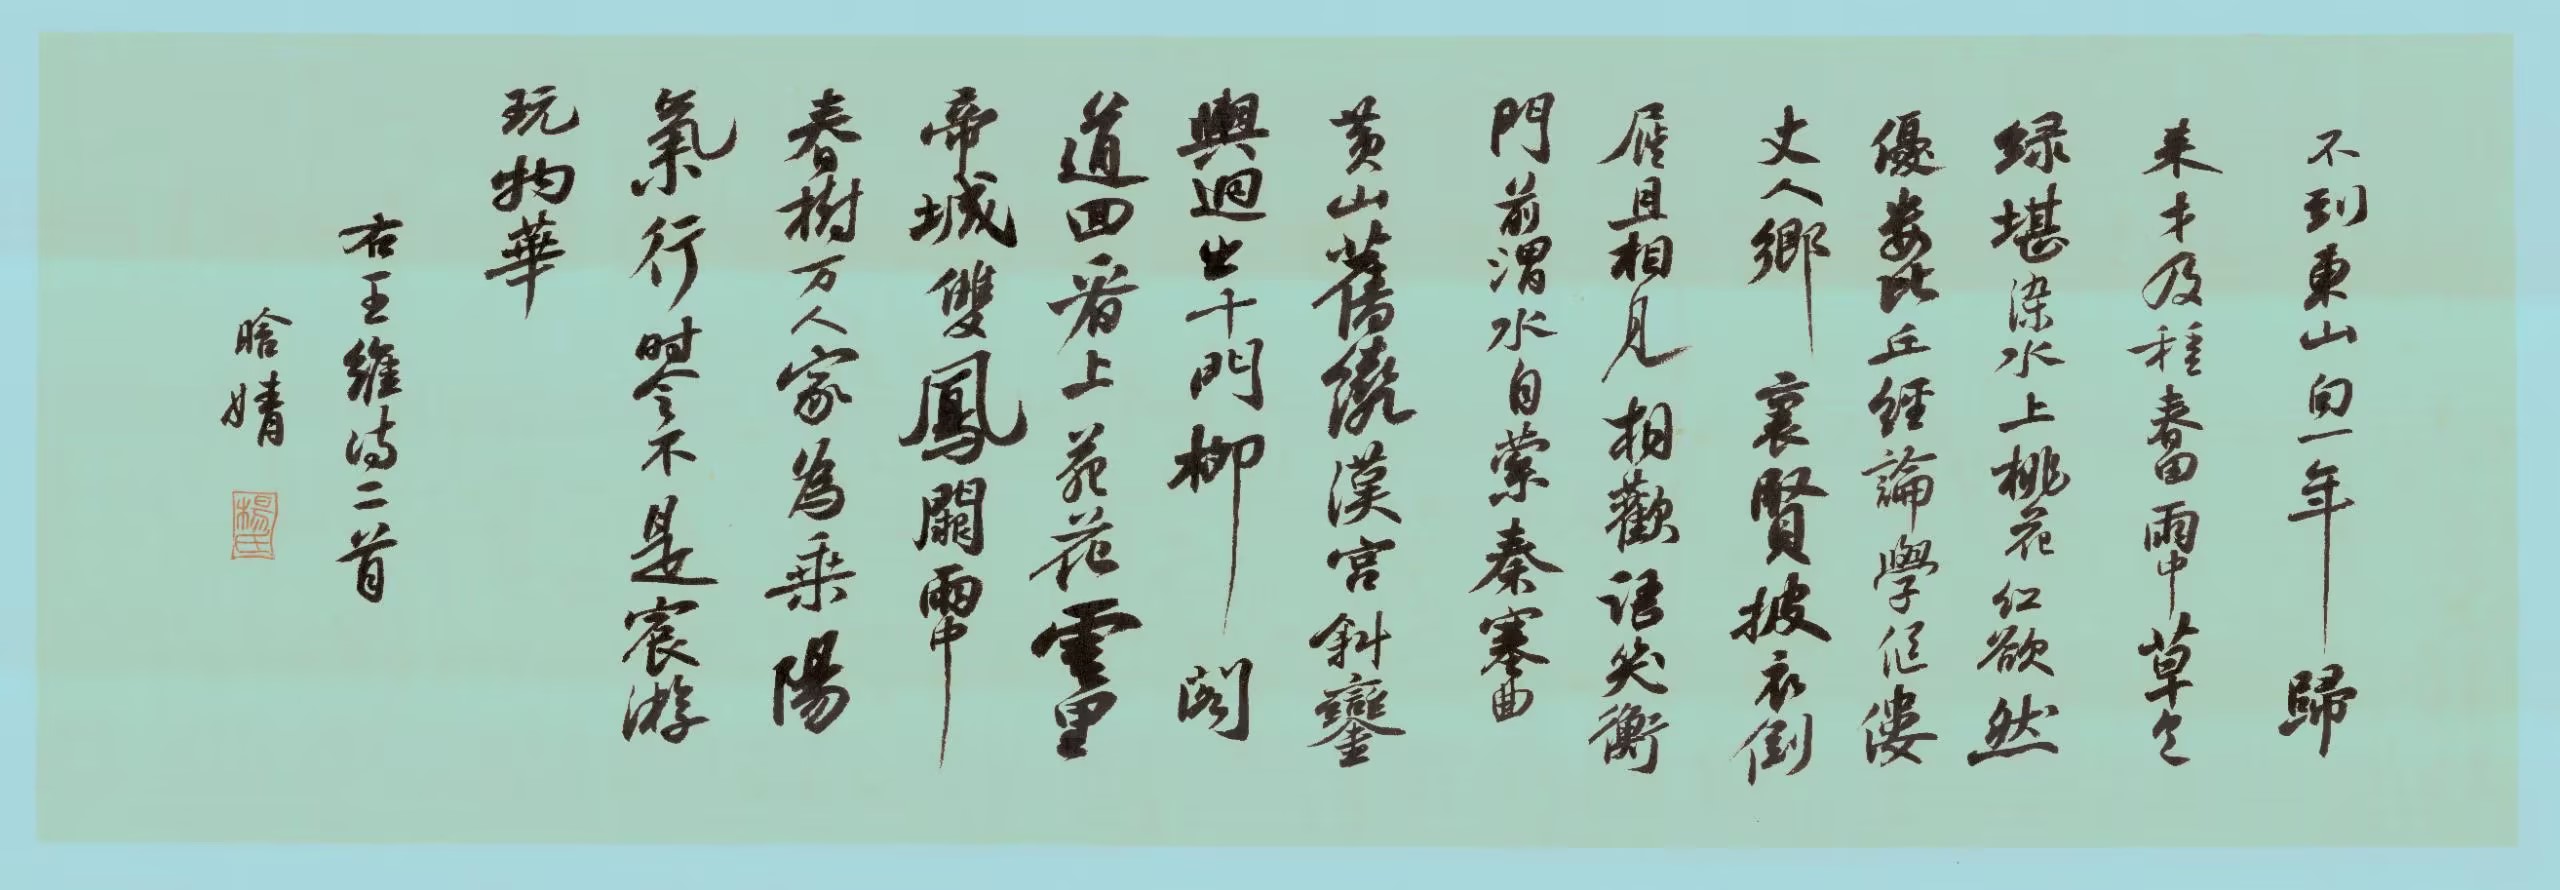 不到東山向一年歸
来才及種春田雨中草色
緑堪染水上桃花红欲然
優婁比丘經論學伛僂
丈人鄉裏賢披衣倒
屣且相見相歡語笑衡
門前渭水自縈秦塞曲
黄山舊繞漢宫斜鑾
輿迥出千門柳閣
道回看上苑花雲里
帝城雙鳳闕雨中
春樹万人家為乘陽
氣行时令不是宸游
玩物華
右王維诗二首
晗婧
楊氏